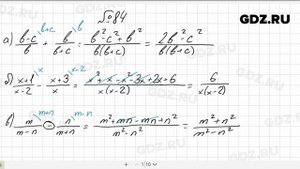 GDZ.RU
№84
b+c b
а) (b-c)/b + b/(b+c) = (b²-c²+b²)/(b(b+c)) = (2b²-c²)/(b(b+c))
б) (x+1)/(x-2) - (x+3)/x = (x²+x-x²-3x+2x+6)/(x(x-2)) = 6/(x(x-2))
m+n m-n
в) m/(m-n) - n/(m+n) = (m²+mn-mn+n²)/(m²-n²) = (m²+n²)/(m²-n²)
GDZ.RU